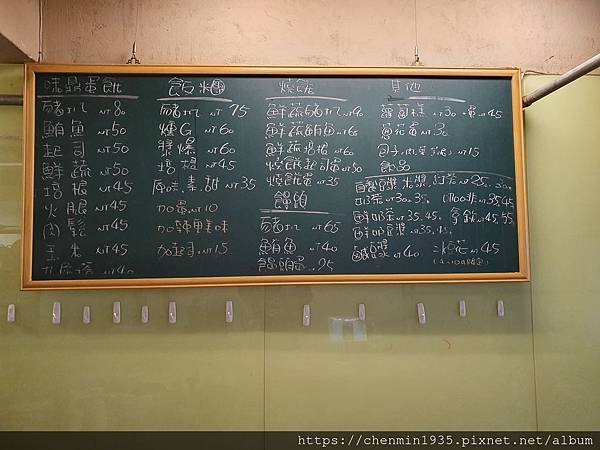 味鼎蛋餅
豬扒 NT 80
鮪魚 NT 50
起司 NT 50
鮮蔬 NT 50
培根 NT 45
火腿 NT 45
肉鬆 NT 45
玉米 NT 45
NT 40
飯糰
豬扒 NT 75
燻G NT 60
醬爆 NT 60
培根 NT 45
原味.素.甜 NT 35
加蛋.NT 10
加起司.NT 15
燒餅
鮮蔬豬扒 NT 90
鮮蔬鮪魚 NT 65
鮮蔬培根 NT 60
燒餅起司蛋 NT 50
燒餅蛋 NT 35
饅頭
豬扒 NT 65
鮪魚 NT 40
饅頭蛋 NT 25
其他
蘿蔔糕 NT 30.蛋 NT 45
蔥花蛋 NT 30
包子 NT 15
飲品
自製豆漿.米漿.紅茶 NT 25.30.
奶茶 NT 30.35.
鮮奶茶 NT 35.45.
鮮奶豆漿 NT 35.45.
鹹豆漿 NT 40
NT 45
https://chenmin1935.pixnet.net/album